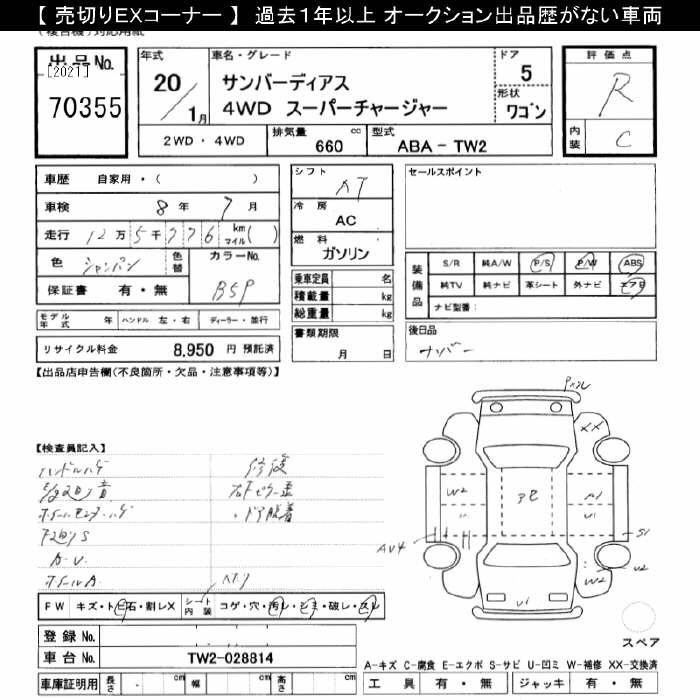 【 売切りEXコーナー 】 過去１年以上 オークション出品歴がない車両
出品No. [2021] 70355
年式 20/1月
車名・グレード サンバーディアス 4WD スーパーチャージャー
ドア 5
形状 ワゴン
評価点 R
内装 C
2WD・4WD
排気量 660 cc
型式 ABA - TW2
車歴 自家用・( )
車検 8年 7月
走行 12万5千776 km マイル( )
色 シャンパン 色替
カラーNo. B5P
保証書 有・無
モデル年式 年 ハンドル 左・右 ディーラー・並行
リサイクル料金 8,950 円 預託済
シフト AT
冷房 AC
燃料 ガソリン
乗車定員 名
積載量 kg
総重量 kg
書類期限 月 日
セールスポイント
装備品 S/R 純A/W P/S P/W ABS
純TV 純ナビ 革シート 外ナビ エアB
ナビ型番：
後日品
ナンバー
【出品店申告欄(不良箇所・欠品・注意事項等)】
【検査員記入】
ハンドルハゲ
修復
下回りS
A・U
ホイールA
XX
W2
U1
A1
S1
AU4
U2
W2
U1
FW キズ・トビ石・割レX
シート内装 コゲ・穴・汚レ・シミ・破レ・スレ
登録 No.
車台 No. TW2-028814
車庫証明用 長さ cm 幅 cm 高さ cm
スペア
A-キズ C-腐食 E-エクボ S-サビ U-凹ミ W-補修 XX-交換済
工具 有・無 ジャッキ 有・無